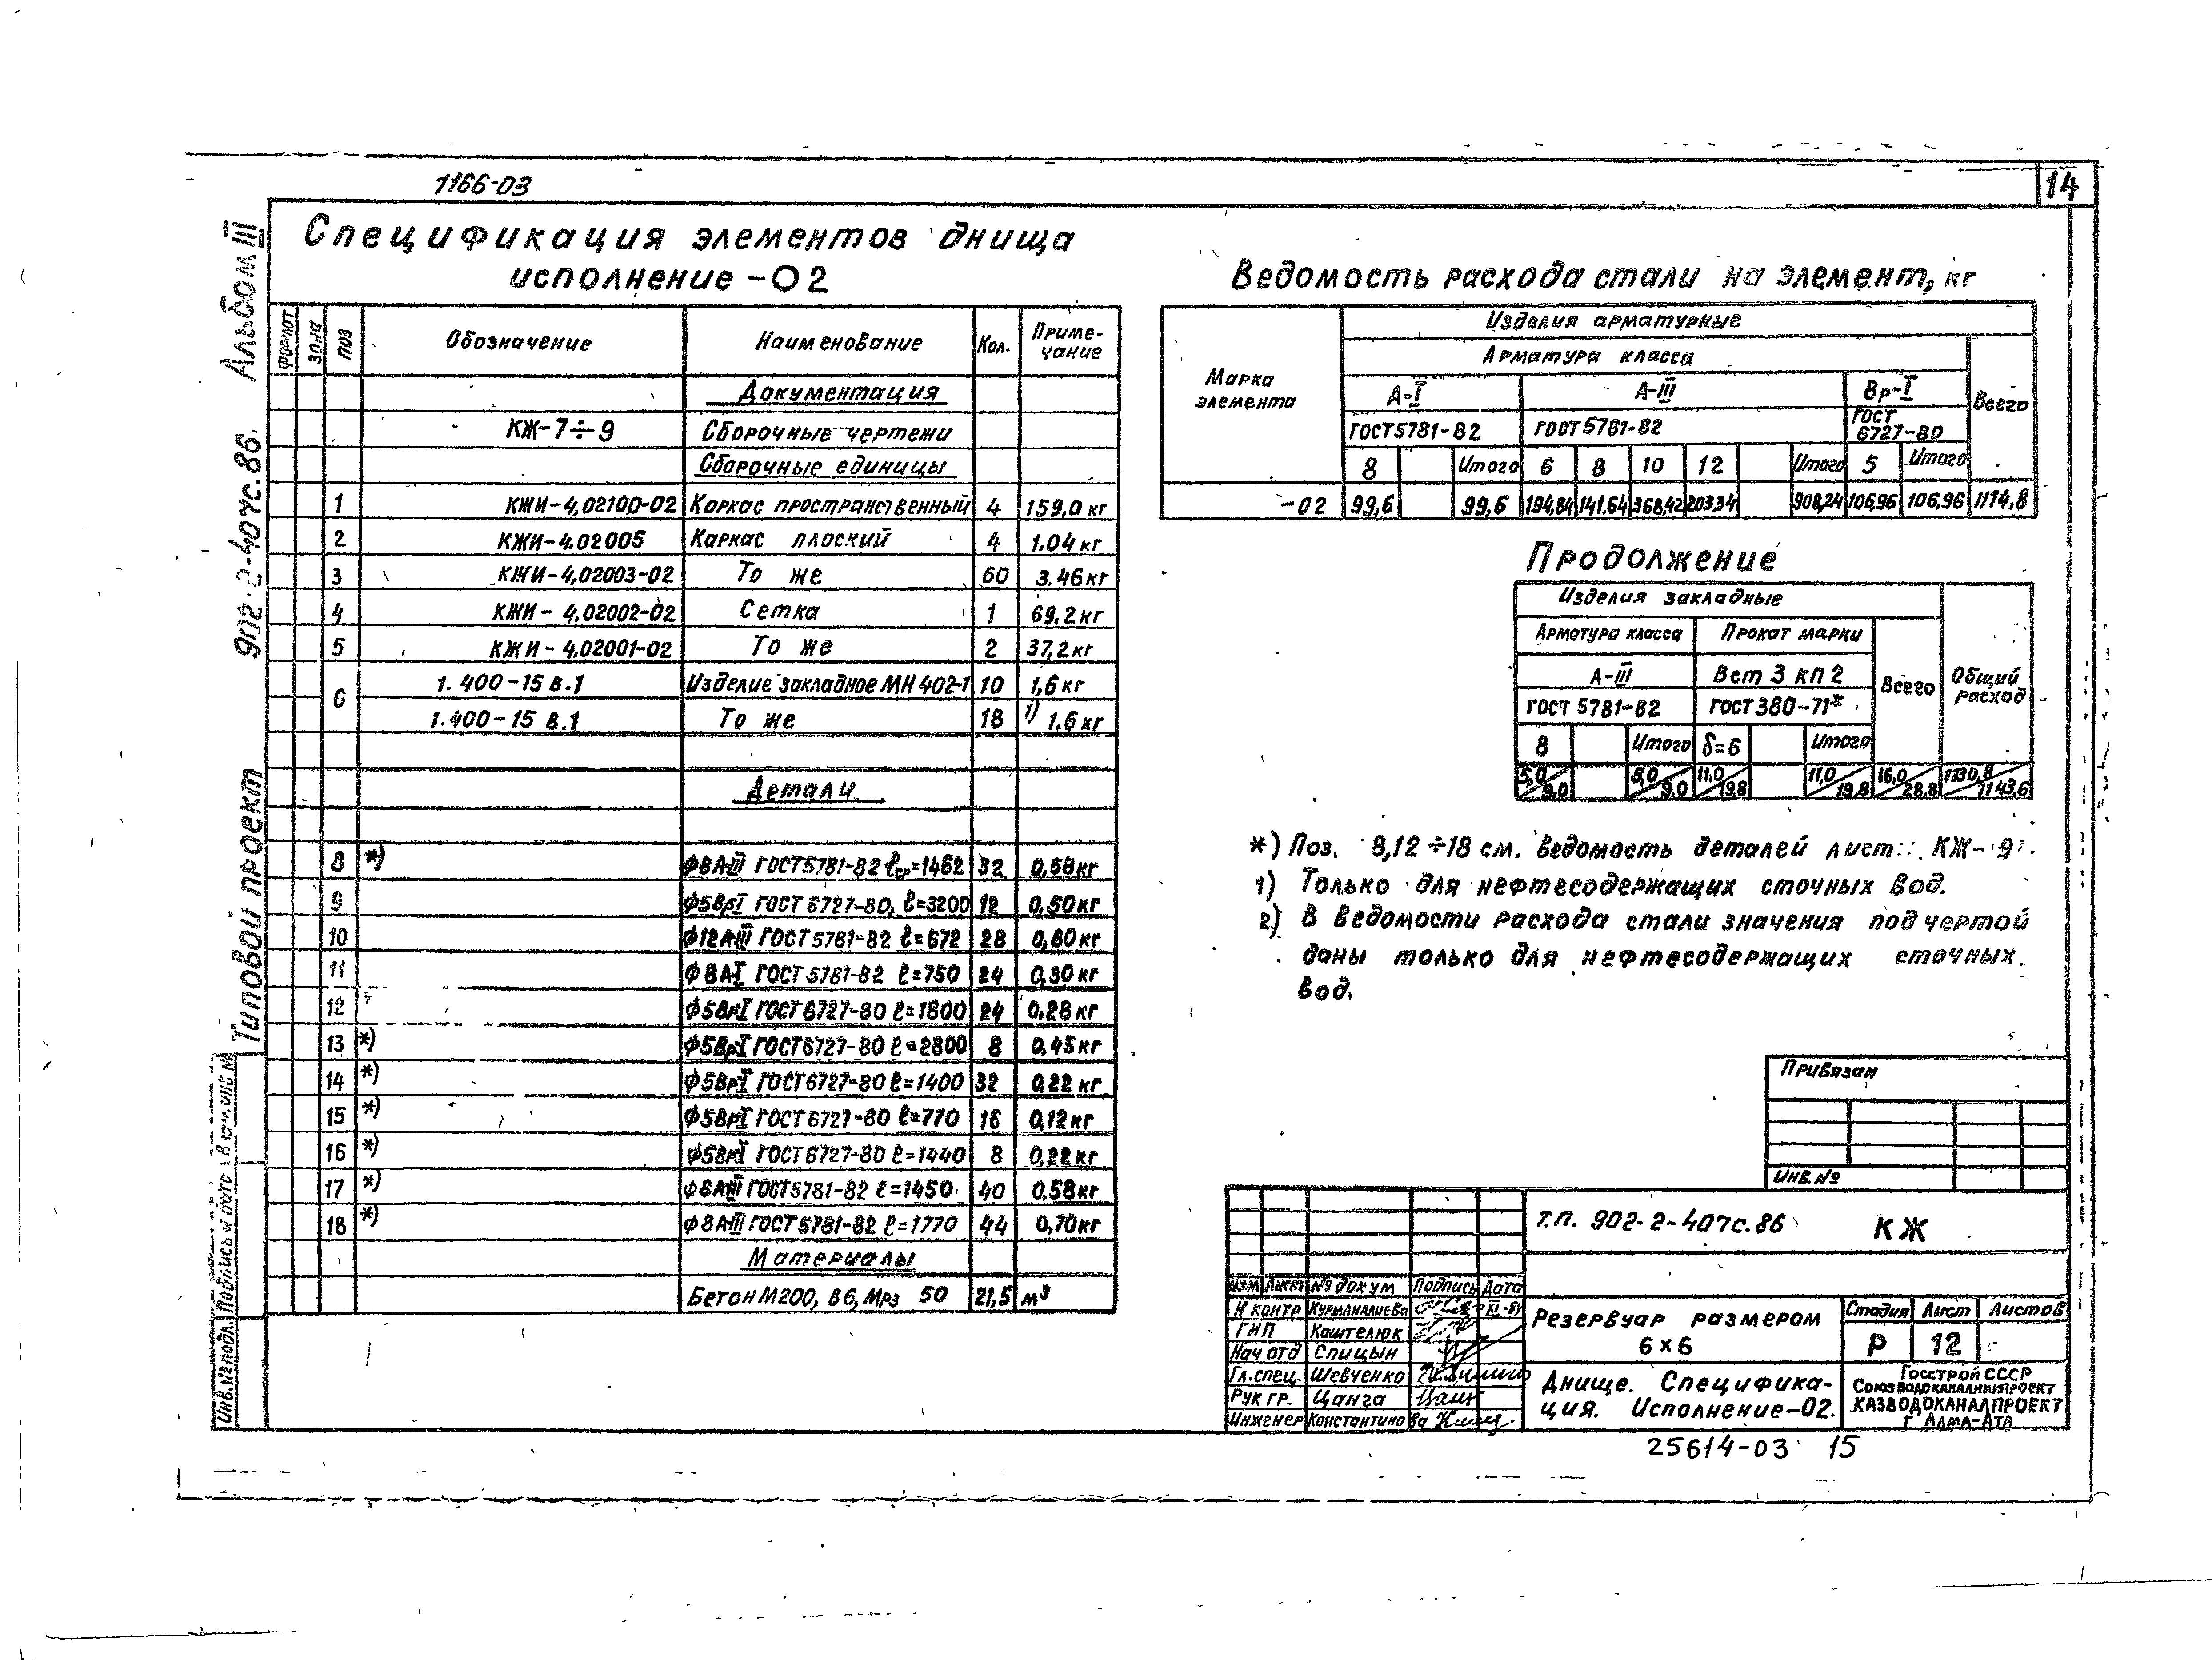 1166-03
14
Альбом III
902-2-407с.86.
Типовой проект
Спецификация элементов днища
исполнение -02
Формат Зона Поз Обозначение Наименование Кол. Приме-
чание
Документация
КЖ-7÷9 Сборочные чертежи
Сборочные единицы
1 КЖИ-4,02100-02 Каркас пространственный 4 159,0 кг
2 КЖИ-4.02005 Каркас плоский 4 1.04 кг
3 КЖИ-4,02003-02 То же 60 3.46 кг
4 КЖИ-4,02002-02 Сетка 1 69,2 кг
5 КЖИ-4,02001-02 То же 2 37,2 кг
6 1.400-15 в.1 Изделие закладное МН 402-1 10 1,6 кг
1.400-15 в.1 То же 18 1) 1.6 кг
Детали
8 *) Ф8АIII ГОСТ5781-82 ℓср=1462 32 0,58 кг
9 Ф5ВрI ГОСТ 6727-80, ℓ=3200 12 0,50 кг
10 Ф12АIII ГОСТ5781-82 ℓ=672 28 0,60 кг
11 Ф8АI ГОСТ5781-82 ℓ=750 24 0,30 кг
12 Ф5ВрI ГОСТ6727-80 ℓ=1800 24 0,28 кг
13 *) Ф5ВрI ГОСТ6727-80 ℓ=2800 8 0,45 кг
14 *) Ф5ВрI ГОСТ6727-80 ℓ=1400 32 0.22 кг
15 *) Ф5ВрI ГОСТ6727-80 ℓ=770 16 0,12 кг
16 *) Ф5ВрI ГОСТ6727-80 ℓ=1440 8 0,22 кг
17 *) Ф8АIII ГОСТ5781-82 ℓ=1450 40 0,58 кг
18 *) Ф8АIII ГОСТ5781-82 ℓ=1770 44 0,70 кг
Материалы
Бетон М200, В6, Мрз 50 21,5 м³
Ведомость расхода стали на элемент, кг
Марка
элемента
Изделия арматурные
Арматура класса
Всего
А-I А-III Вр-I
ГОСТ5781-82 ГОСТ5781-82 ГОСТ
6727-80
8 Итого 6 8 10 12 Итого 5 Итого
-02 99,6 99,6 194,84 141.64 368,42 203,34 908,24 106,96 106,96 1114,8
Продолжение
Изделия закладные
Арматура класса Прокат марки
А-III Вст 3 кп 2 Всего Общий
расход
ГОСТ 5781-82 ГОСТ 380-71*
8 Итого δ=6 Итого
5,0/9,0 5,0/9,0 11,0/19,8 11,0/19,8 16,0/28,8 1130,8/1143,6
*) Поз. 8,12÷18 см. Ведомость деталей лист КЖ-9.
1) Только для нефтесодержащих сточных вод.
2) В ведомости расхода стали значения под чертой
даны только для нефтесодержащих сточных
вод.
Привязан
Инв.№
Т.П. 902-2-407с.86 КЖ
Изм Лист № докум Подпись Дата
Н контр Курманалиева
ГИП Каштелюк
Нач отд Спицын
Гл.спец. Шевченко
Рук гр. Цанга
Инженер Константинова
Резервуар размером
6×6
Стадия Лист Листов
Р 12
Днище. Специфика-
ция. Исполнение-02.
Госстрой СССР
Союзводоканалниипроект
КАЗВОДОКАНАЛПРОЕКТ
г Алма-Ата
Инв.№ подл. Подпись и дата Взам.инв №
25614-03 15